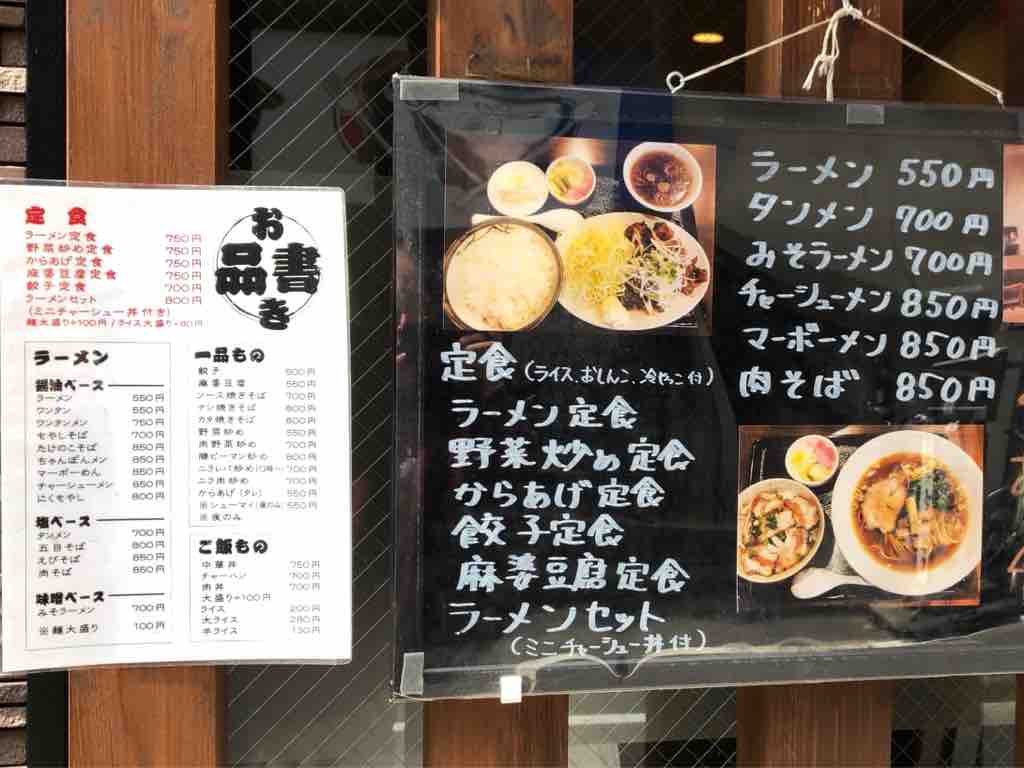 お品書き
定食
ラーメン定食 750円
野菜炒め定食 750円
からあげ定食 750円
麻婆豆腐定食 750円
餃子定食 700円
ラーメンセット 800円
(ミニチャーシュー丼付き)
麺大盛り+100円/ライス大盛り+80円
ラーメン
醤油ベース
ラーメン 550円
ワンタン 550円
ワンタンメン 750円
もやしそば 700円
たけのこそば 850円
ちゃんぽんメン 850円
マーボーめん 850円
チャーシューメン 850円
にくもやし 800円
塩ベース
タンメン 700円
五目そば 800円
えびそば 850円
肉そば 850円
味噌ベース
みそラーメン 700円
※麺大盛り 100円
一品もの
餃子 500円
麻婆豆腐 550円
ソース焼きそば 700円
ナシ焼きそば 800円
カタ焼きそば 800円
野菜炒め 550円
肉野菜炒め 700円
豚ピーマン炒め 800円
ニラレバ炒め 700円
ニラ肉炒め 700円
からあげ(タレ) 550円
※シューマイ(夜のみ) 550円
※夜のみ
ご飯もの
中華丼 750円
チャーハン 700円
肉丼 700円
大盛り+100円
ライス 200円
大ライス 280円
半ライス 130円
定食(ライス、おしんこ、冷やっこ付)
ラーメン定食
野菜炒め定食
からあげ定食
餃子定食
麻婆豆腐定食
ラーメンセット
(ミニチャーシュー丼付)
ラーメン 550円
タンメン 700円
みそラーメン 700円
チャーシューメン 850円
マーボーメン 850円
肉そば 850円